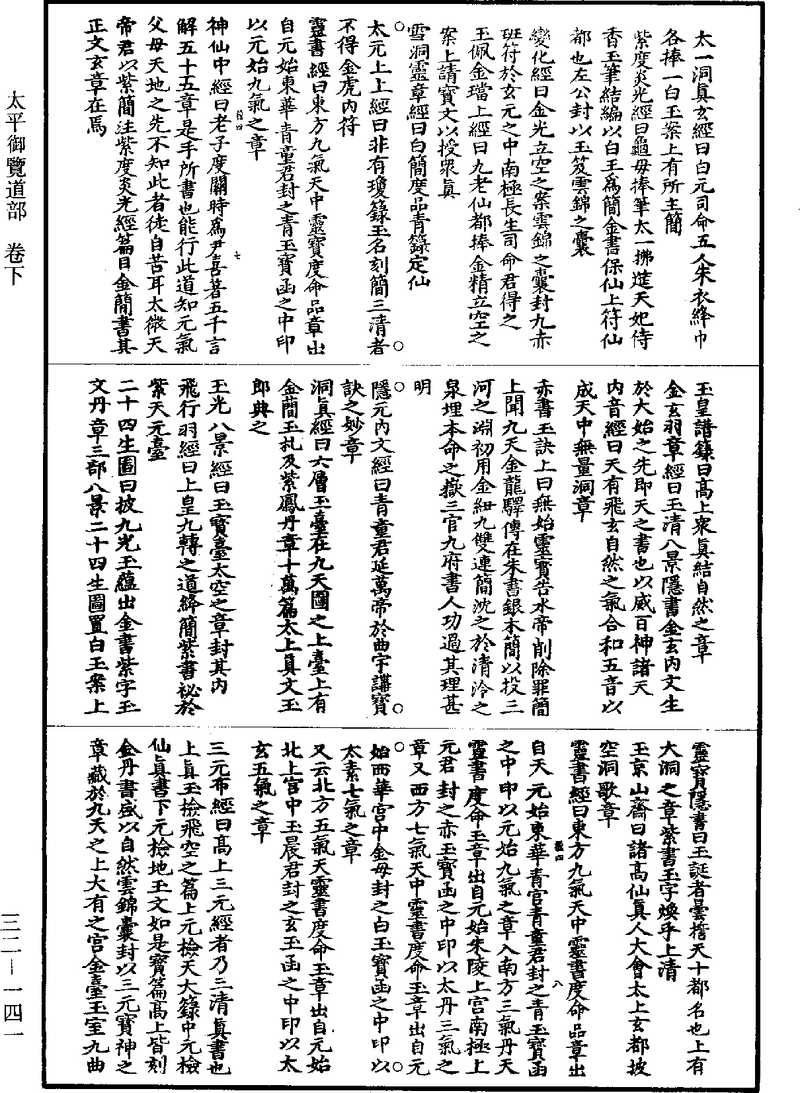 太平御覽道部　卷下
太一洞真玄經曰白元司命五人朱衣絳巾
各捧一白玉案上有所主簡
紫度炎光經曰龜母捧筆太一拂筵天妃侍
香玉筆結編以白玉為簡金書保仙上符仙
都也左公封以玉笈雲錦之囊
變化經曰金光立空之案雲錦之囊封九赤
班符於玄元之中南極長生司命君得之
玉佩金璫上經曰九老仙都捧金精立空之
案上請寶文以授衆真
雪洞靈章經曰白簡度品青籙定仙
太元上上經曰非有瓊籙玉名刻簡三清者
不得金虎內符
靈書經曰東方九氣天中靈寶度命品章出
自元始東華青童君封之青玉寶函之中印
以元始九氣之章
神仙中經曰老子度關時為尹喜著五千言
解五十五章是手所書也能行此道知元氣
父母天地之先不知此者徒自苦耳太微天
帝君以紫簡注紫度炎光經篇目金簡書其
正文玄章在焉
玉皇譜籙曰髙上衆真結自然之章
金玄羽章經曰玉清八景隱書金玄內文生
於大始之先即天之書也以威百神諸天
內音經曰天有飛玄自然之氣合和五音以
成天中無量洞章
赤書玉訣上曰無始靈寶告水帝削除罪簡
上聞九天金龍驛傳在朱書銀木簡以投三
河之淵初用金紐九雙連簡沈之於清泠之
泉埋本命之嶽三官九府書人功過其理甚
明
隱元內文經曰青童君延萬帝於曲宇講寶
訣之妙章
洞真經曰六層玉臺在九天圖之上臺上有
金蕳玉札及紫鳳丹章十萬篇太上真文玉
郎典之
玉光八景經曰玉寶臺太空之章封其內
飛行羽經曰上皇九轉之道絳簡紫書祕於
紫天元臺
二十四生圖曰披九光玉蘊出金書紫字玉
文丹章三部八景二十四生圖置白玉案上
靈寶隱書曰玉誕者曇揩天十都名也上有
大洞之章紫書玉字煥乎上清
玉京山齋曰諸高仙真人大會太上玄都披
空洞歌章
靈書經曰東方九氣天中靈書度命品章出
自天元始東華青宮青童君封之青玉寶函
之中印以元始九氣之章入南方三氣丹天
靈書度命玉章出自元始朱陵上宮南極上
元君封之赤玉寶函之中印以太丹三氣之
章又西方七氣天中靈書度命玉章出自元
始西華宮中金母封之白玉寶函之中印以
太素七氣之章
又云北方五氣天靈書度命玉章出自元始
北上宮中玉晨君封之玄玉函之中印以太
玄五氣之章
三元布經曰髙上三元經者乃三清真書也
上真玉檢飛空之篇上元檢天大籙中元檢
仙真書下元檢地玉文如是寶篇髙上皆刻
金丹書盛以自然雲錦囊封以三元寶神之
章藏於九天之上大有之宮金臺玉室九曲
三二—一四一